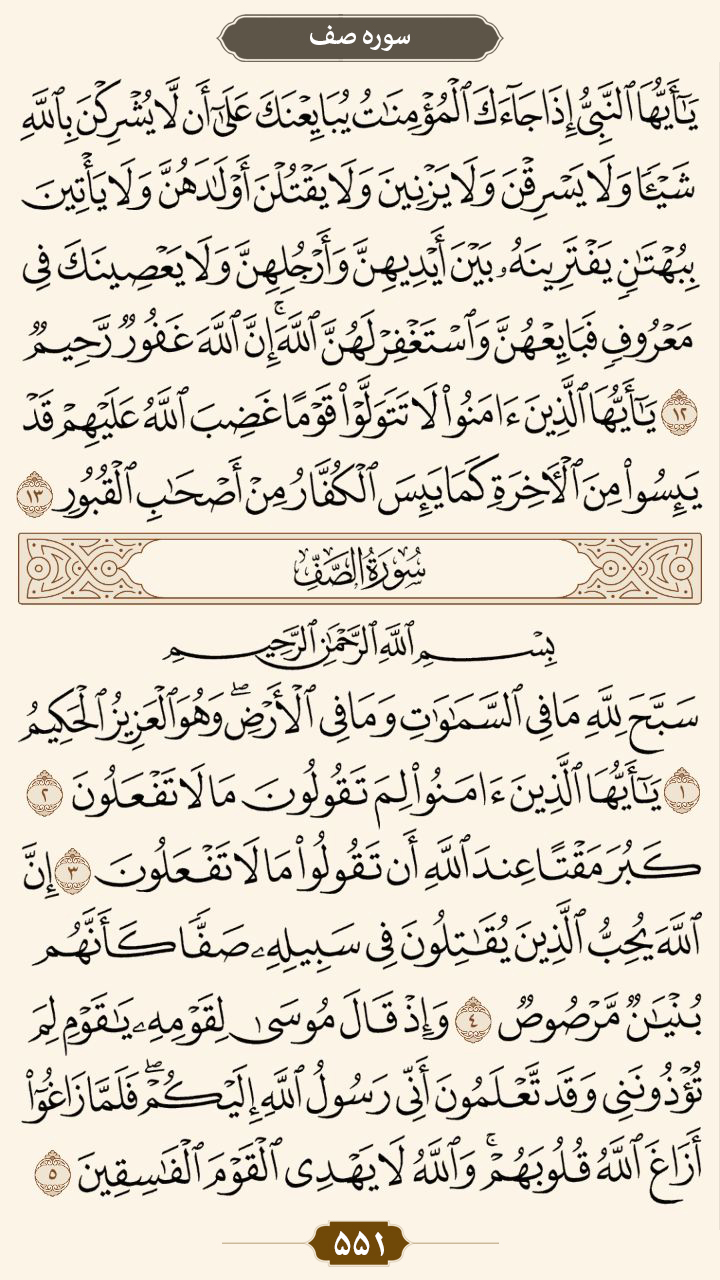 سوره صف
يَـٰٓأَيُّهَا ٱلنَّبِىُّ إِذَا جَآءَكَ ٱلْمُؤْمِنَـٰتُ يُبَايِعْنَكَ عَلَىٰٓ أَن لَّا يُشْرِكْنَ بِٱللَّهِ
شَيْـًٔا وَلَا يَسْرِقْنَ وَلَا يَزْنِينَ وَلَا يَقْتُلْنَ أَوْلَـٰدَهُنَّ وَلَا يَأْتِينَ
بِبُهْتَـٰنٍ يَفْتَرِينَهُۥ بَيْنَ أَيْدِيهِنَّ وَأَرْجُلِهِنَّ وَلَا يَعْصِينَكَ فِى
مَعْرُوفٍ فَبَايِعْهُنَّ وَٱسْتَغْفِرْ لَهُنَّ ٱللَّهَ ۚ إِنَّ ٱللَّهَ غَفُورٌ رَّحِيمٌ
١٢ يَـٰٓأَيُّهَا ٱلَّذِينَ ءَامَنُوا۟ لَا تَتَوَلَّوْا۟ قَوْمًا غَضِبَ ٱللَّهُ عَلَيْهِمْ قَدْ
يَئِسُوا۟ مِنَ ٱلْـَٔاخِرَةِ كَمَا يَئِسَ ٱلْكُفَّارُ مِنْ أَصْحَـٰبِ ٱلْقُبُورِ ١٣
سُورَةُ الصَّفِّ
بِسْمِ ٱللَّهِ ٱلرَّحْمَـٰنِ ٱلرَّحِيمِ
سَبَّحَ لِلَّهِ مَا فِى ٱلسَّمَـٰوَٰتِ وَمَا فِى ٱلْأَرْضِ ۖ وَهُوَ ٱلْعَزِيزُ ٱلْحَكِيمُ
١ يَـٰٓأَيُّهَا ٱلَّذِينَ ءَامَنُوا۟ لِمَ تَقُولُونَ مَا لَا تَفْعَلُونَ ٢
كَبُرَ مَقْتًا عِندَ ٱللَّهِ أَن تَقُولُوا۟ مَا لَا تَفْعَلُونَ ٣ إِنَّ
ٱللَّهَ يُحِبُّ ٱلَّذِينَ يُقَـٰتِلُونَ فِى سَبِيلِهِۦ صَفًّا كَأَنَّهُم
بُنْيَـٰنٌ مَّرْصُوصٌ ٤ وَإِذْ قَالَ مُوسَىٰ لِقَوْمِهِۦ يَـٰقَوْمِ لِمَ
تُؤْذُونَنِى وَقَد تَّعْلَمُونَ أَنِّى رَسُولُ ٱللَّهِ إِلَيْكُمْ ۖ فَلَمَّا زَاغُوٓا۟
أَزَاغَ ٱللَّهُ قُلُوبَهُمْ ۚ وَٱللَّهُ لَا يَهْدِى ٱلْقَوْمَ ٱلْفَـٰسِقِينَ ٥
۵۵۱